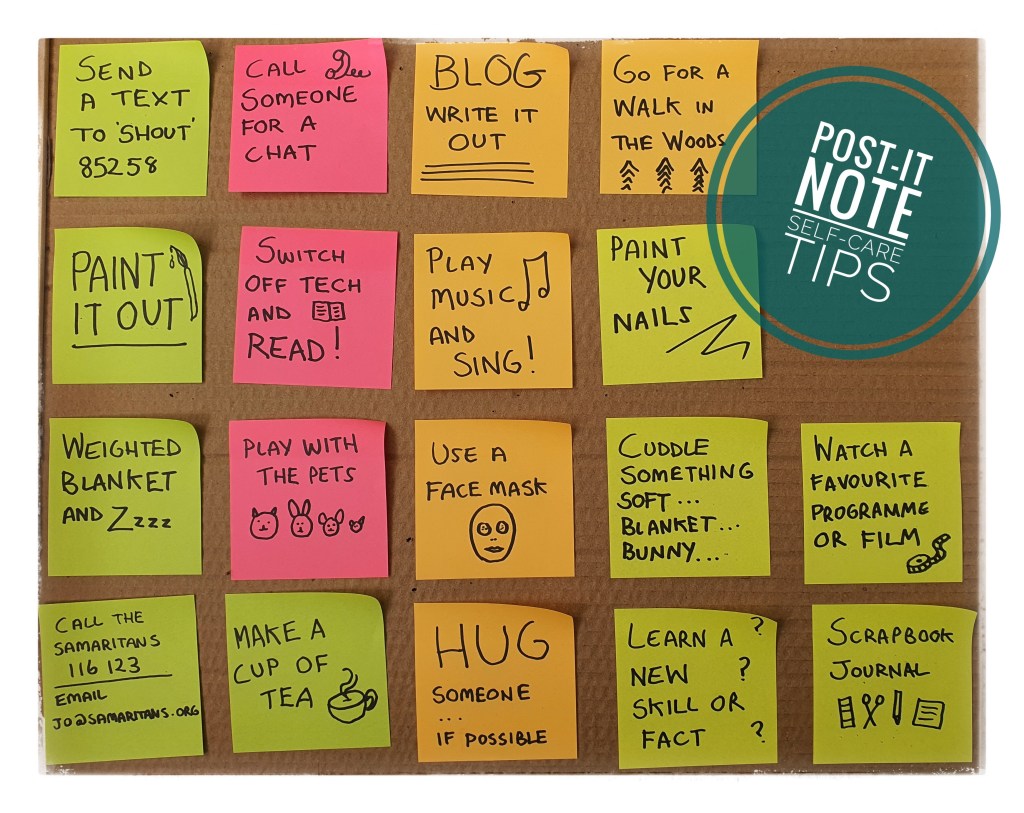 SEND
A TEXT
TO 'SHOUT'
85258
CALL
SOMEONE
FOR A
CHAT
BLOG
WRITE IT
OUT
GO FOR A
WALK IN
THE WOODS
POST-IT
NOTE
SELF-CARE
TIPS
PAINT
IT OUT
SWITCH
OFF TECH
AND
READ!
PLAY
MUSIC
AND
SING!
PAINT
YOUR
NAILS
WEIGHTED
BLANKET
AND Zzzz
PLAY WITH
THE PETS
USE A
FACE MASK
CUDDLE
SOMETHING
SOFT...
BLANKET...
BUNNY...
WATCH A
FAVOURITE
PROGRAMME
OR FILM
CALL THE
SAMARITANS
116 123
EMAIL
JO@SAMARITANS.ORG
MAKE A
CUP OF
TEA
HUG
SOMEONE
...
IF POSSIBLE
LEARN A ?
NEW ?
SKILL OR
FACT ?
SCRAPBOOK
JOURNAL